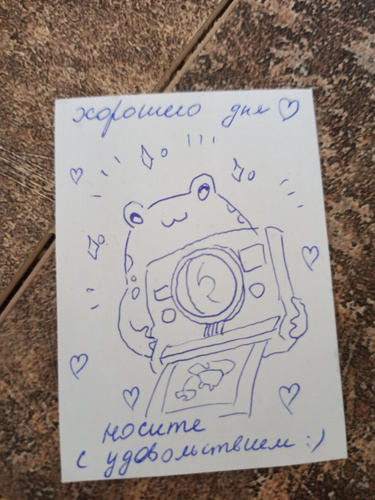 хорошего дня ♡
носите
с удовольствием :)